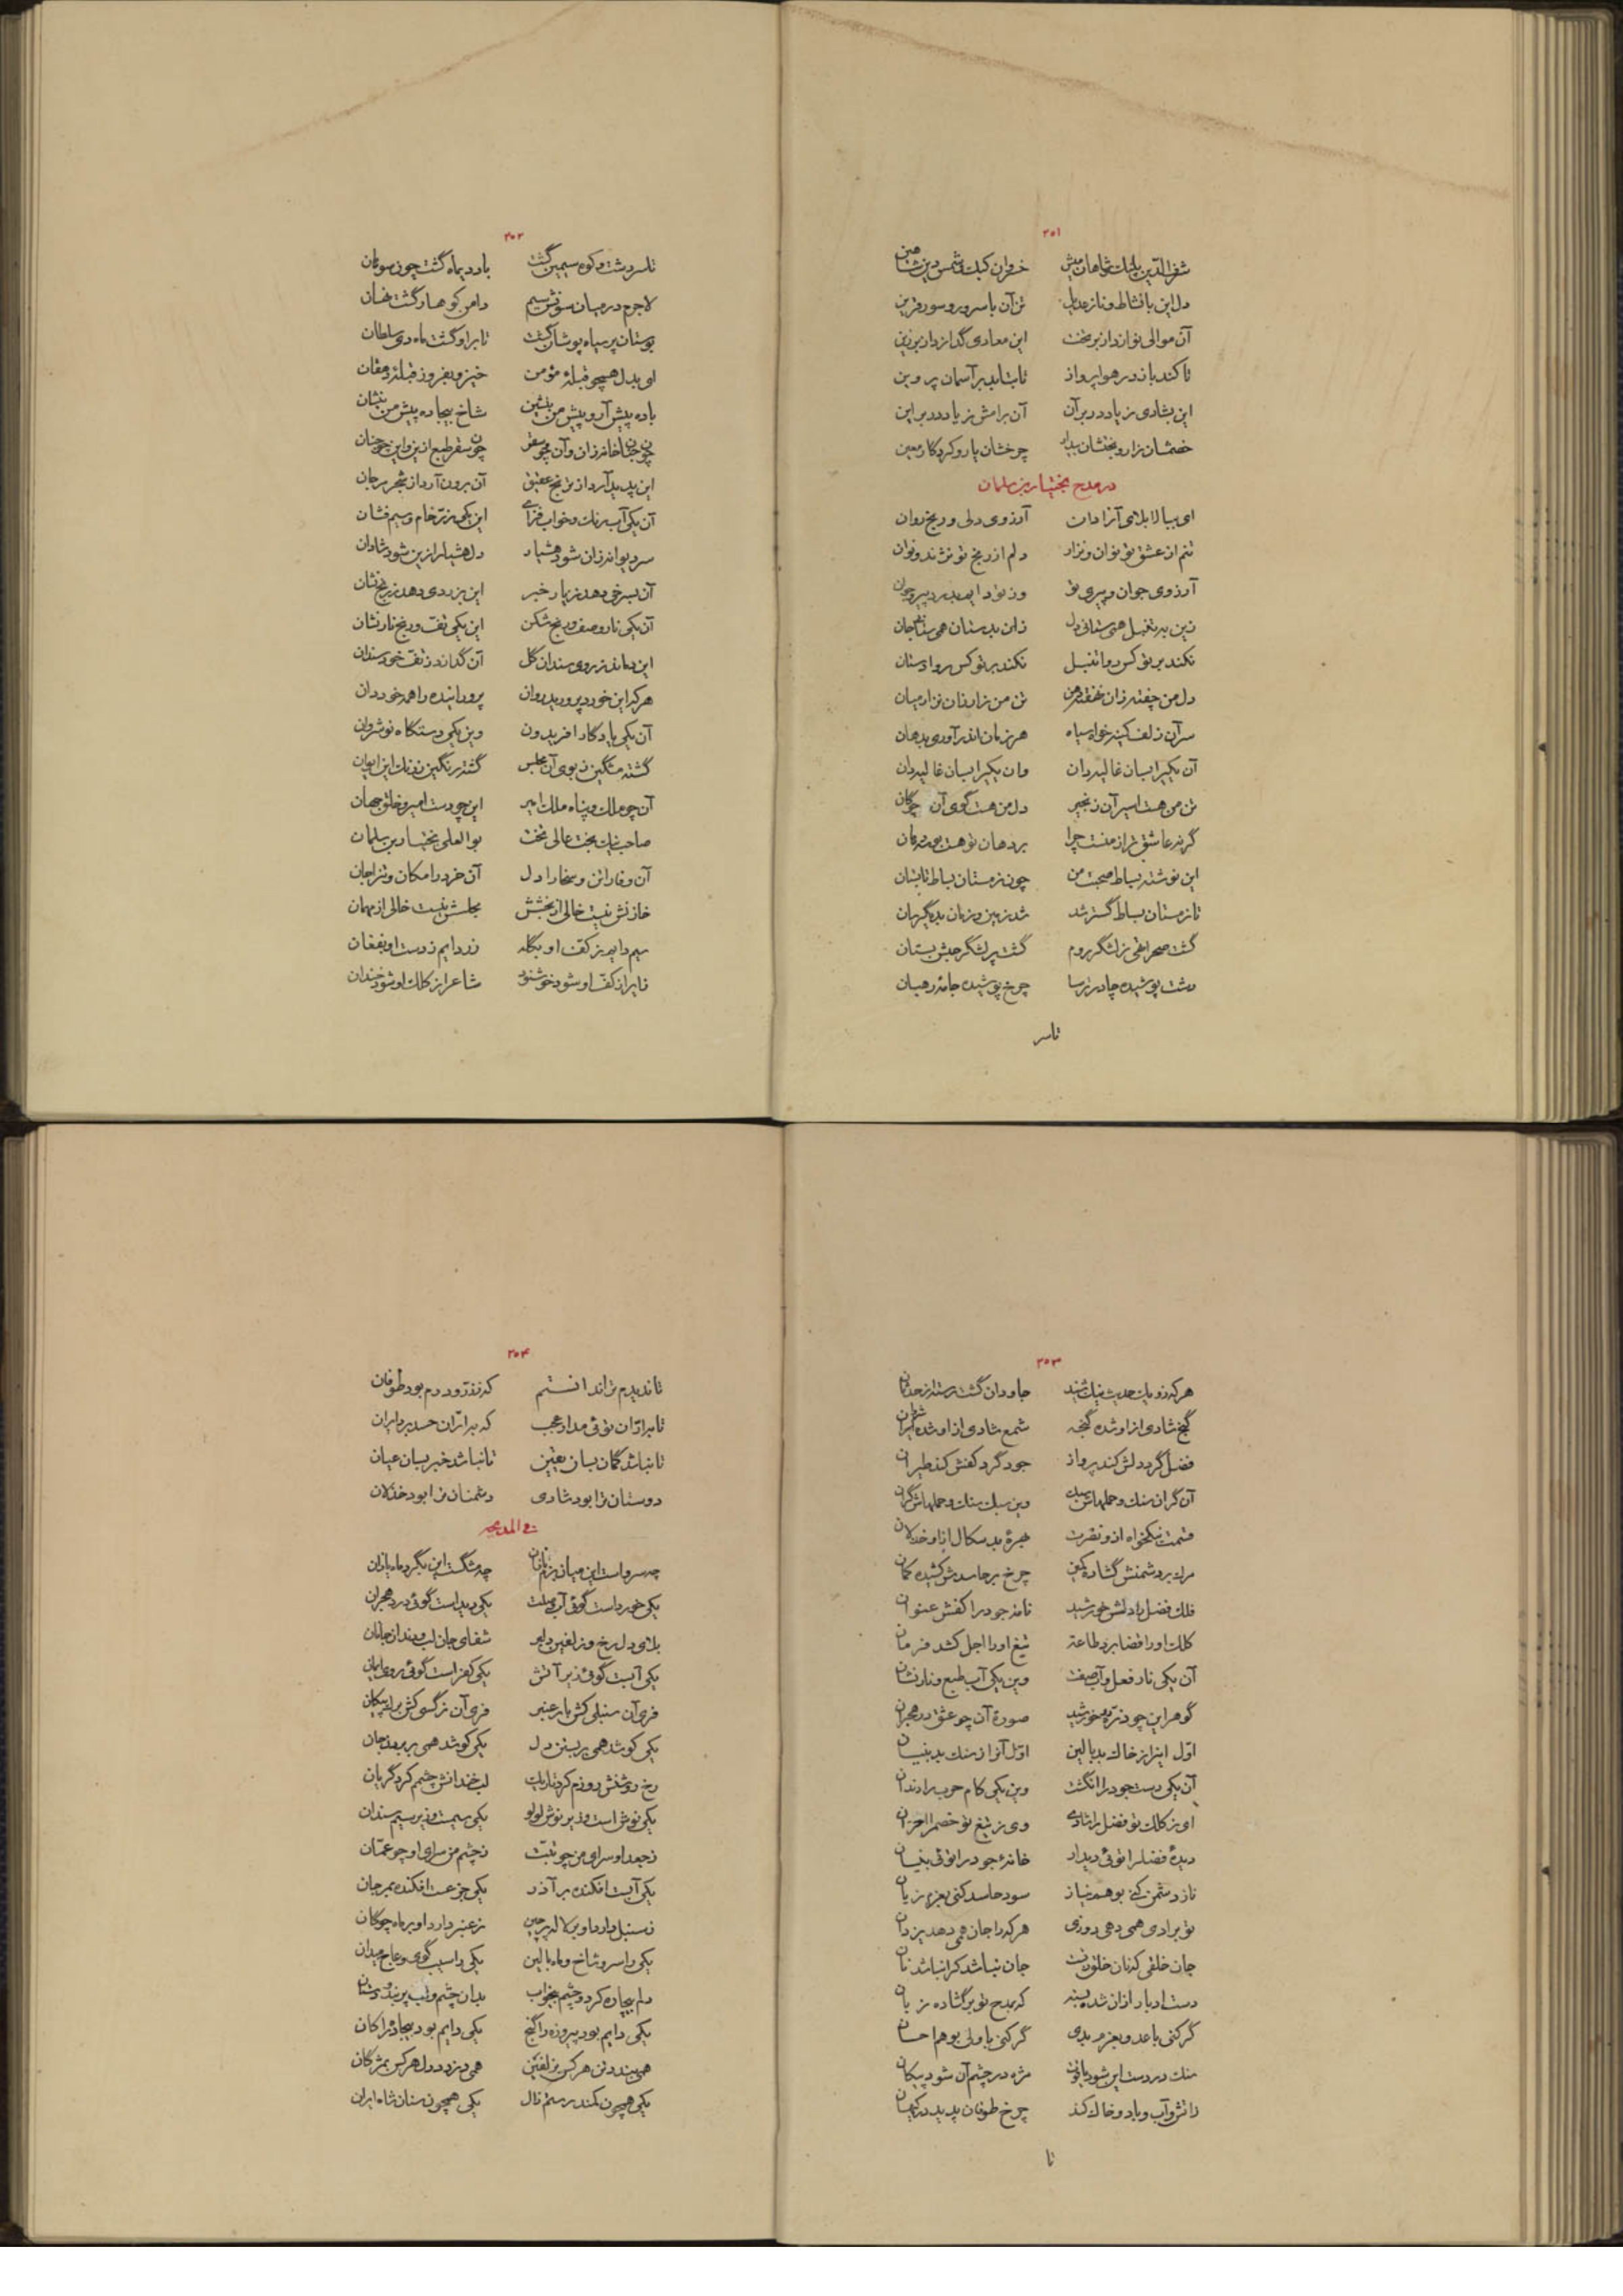 ۳۵۱
دل این با نشاط و ناز عدیل تن آن با سرور و سور قرین
آن موالی نوازد از بر تخت این معادی گدازد از بر زین
تا کند باز در هوا پرواز تا بتابد بر آسمان پروین
این بشادی زیاد در بر آن آن برامش زیاد در بر این
خصمشان زار و بختشان بیدار چرخشان یار و کردگار معین
در مدح بختیار بن سلمان
ای ببالا بلای آزادان آرزوی دلی و رنج روان
تنم از عشق تو نوان و نزار دلم از رنج تو نژند و نوان
آرزوی جوان و پیری تو وز تو دایم بدرد پیر و جوان
زین به تنبل همی ستانی دل زان بدستان همی ستانی جان
نکند بر تو کس روا تنبل نکند بر تو کس روا دستان
دل من چفته زان خفته من تن من زار زان نزار میان
سر آن زلف کینه خواه سیاه هر زمان اندر آوری بدهان
آن یکی را بسان غالیه دان وان یکی را بسان غالیه دان
تن من هست اسیر آن زنجیر دل من هست گوی آن چوگان
گر نه عاشق تر از منست چرا بر دهان تو هست
این نوشته بساط صحبت من چون زمستان بساط تابستان
تا زمستان بساط گستر شد شد زمین و زمان بدیگر سان
گشت صحرا تهی ز لشگر روم گشت پر لشگر حبش بستان
دشت پوشیده چادر ترسا چرخ پوشیده جامه رهبان
تاسر
۳۵۲
تاسر دشت و کوه سیمین گشت باد دیماه گشت چون سوهان
لاجرم در میان سونش سیم دامن کوهسار گشت نهان
بوستان پر سیاه پوشان گشت تا براو گشت ماه دی سلطان
ای بدل همچو قبله مؤمن خیز و بفروز قبله دهقان
باده پیش آر و پیش من بنشین شاخ بیجاده پیش من بنشان
چون جنان خانه زان و آن چو سقر چون سقر طبع ازین و این چو جنان
این پدید آرد از ترنج عقیق آن برون آرد از شجر مرجان
آن یکی آب رنگ و خواب فزای این یکی زر خام و سیم فشان
سر دیوانه زان شود هشیار دل هشیار ازین شود شادان
آن بسرخی دهد ز یار خبر این بزردی دهد ز رنج نشان
آن یکی نار وصف و رنج شکن این یکی تفت و رنج نار نشان
این دماند ز روی سندان گل آن گدازد ز تف خود سندان
هر که این خورد پرورید روان پروراننده را همه خورد آن
آن یکی یادگار افریدون وین یکی دستگاه نوشروان
گشته مشکین ز بوی آن مجلس گشته رنگین ز رنگ این ایوان
آن چو ملک و پناه ملک امیر این چو دست امیر و خلق جهان
صاحب نیک بخت عالی تخت بوالعلی بختیار بن سلمان
آن وفا را تن و سخا را دل آن خرد را مکان و تن را جان
خازنش نیست خالی از بخشش مجلسش نیست خالی از مهمان
سیم دایم ز کف او بگله زر دایم ز دست او بفغان
زایر از کف او شود خوشنود شاعر از کلک او شود خندان
۳۵۳
هر که زو یک حدیث نیک شنید جاودان گشت رسته از حدثان
گنج شادی از او شده گنجه شمع شادی از او شده شمکران
فضل گرد دلش کند پرواز جود گرد کفش کند طیران
آن گران سنگ و حملهاش سبک وین سبک سنگ و حملهاش گران
قسمت نیکخواه از او نصرت بهره بد سگال از او خذلان
مرگ بر دشمنش گشاده کمین چرخ بر حاسدش کشیده کمان
فلک فضل را دلش خورشید نامه جود را کفش عنوان
کلک او را قضا برد طاعت تیغ او را اجل کشد فرمان
آن یکی نار فعل و آب صفت وین یکی آب طبع و نار نشان
گوهر این چو ذره خورشید صورة آن چو عشق در هجران
اول این را ز خاک بد بالین اول آنرا ز سنگ بد بنیان
آن یکی دست جود را انگشت وین یکی کام حرب را دندان
ای ز کلک تو فضل را شادی وی ز تیغ تو خصم را احزان
دیده فضل را توئی دیدار خانه جود را توئی بنیان
ناز دشمن کنی بوهم نیاز سود حاسد کنی بعزم زیان
تو برادی همی دهی روزی هر که را جان همی دهد یزدان
جان خلقی که نان خلق از تست جان نباشد کرا نباشد نان
دست ادبار از آن شده بسته که بمدح تو برگشاده زبان
گر کنی با عدو بعزم بدی گر کنی با ولی بوهم احسان
سنگ در دست این شود یاقوت مژه در چشم آن شود پیکان
ز آتش و آب و باد و خاک کند چرخ طوفان پدید در کیهان
تا
۳۵۴
تا ندیدم ترا ندانستم که ز زر و درم بود طوفان
تا برادران توئی مدار عجب که برادران حسد برد ایران
تا نباشد گمان بسان یقین تا نباشد خبر بسان عیان
دوستان ترا بود شادی دشمنان ترا بود خذلان
فی المدیحه
چه سرو است این میان بزم نازان چه مشگست این بگرد ماه یازان
یکی خورداست گوئی آب وصلت یکی دیداست گوئی درد هجران
بلای دل رخ و زلفین دلبر شفای جان لب و دندان جانان
یکی آبست گوئی زیر آتش یکی کفر است گوئی روی ایمان
فری آن سنبلی کش بار عنبر فری آن نرگسی کش برگ پیکان
یکی کوشد همی بر بستن دل یکی کوشد همی بر بردن جان
رخ روشنش روزم کرد تاریک لب خندانش چشمم کرد گریان
یکی نوش است و زیر نوش لولو یکی سیمست و زیر سیم سندان
ز جعد او سرای من چو تبت ز چشم من سرای او چو عمان
یکی آبست افکنده بر آذر یکی جزعست افکنده بمرجان
ز سنبل دارد او بر لاله پرچین ز عنبر دارد او بر ماه چوگان
یکی را سرو شاخ و ماه بالین یکی را سیب گوی و عاج میدان
دلم بیچاره کرد و چشم بیخواب بدان چشم و لب پربند و دستان
یکی دایم بود پیروزه را گنج یکی دایم بود بیجاده را کان
همی بندد تن هر کس بزلفین همی دزدد دل هر کس بمژگان
یکی همچون کمند رستم زال یکی همچون سنان شاه ایران